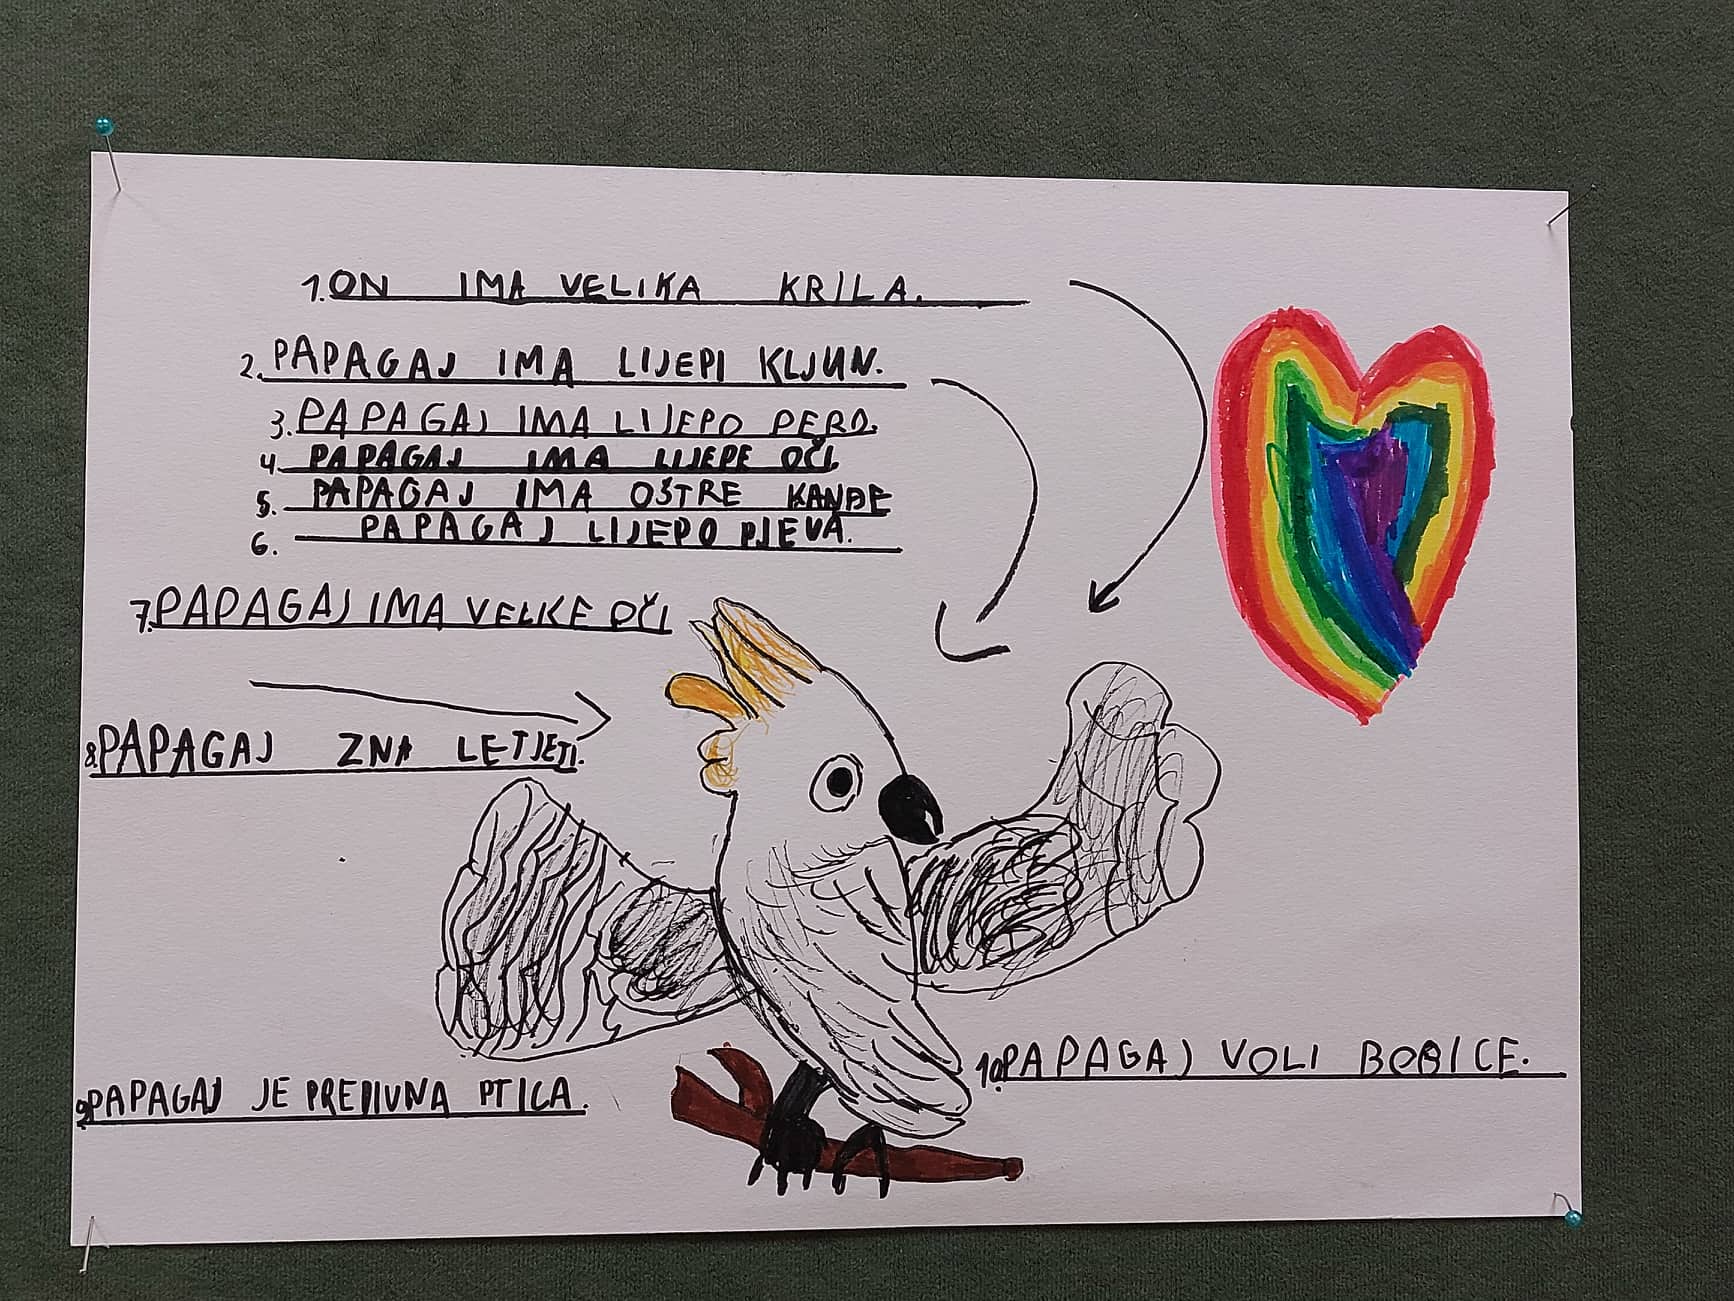 1. ON IMA VELIKA KRILA.
2. PAPAGAJ IMA LIJEPI KLJUN.
3. PAPAGAJ IMA LIJEPO PERO.
4. PAPAGAJ IMA LIJEPE OČI.
5. PAPAGAJ IMA OŠTRE KANĐE
6. PAPAGAJ LIJEPO PJEVA.
7. PAPAGAJ IMA VELKE OČI
8. PAPAGAJ ZNA LETJETI.
9. PAPAGAJ JE PREDIVNA PTICA.
10. PAPAGAJ VOLI BOBICE.